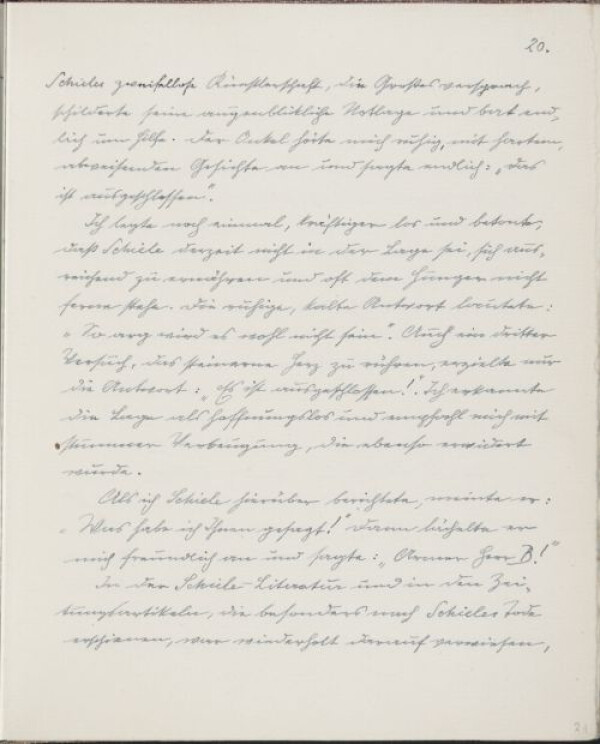 20.
Schieles zweifellose Künstlerschaft, die Großes versprach,
schilderte seine augenblickliche Notlage und bat end-
lich um Hilfe. Der Onkel hörte mich ruhig, mit hartem,
abweisenden Gesichte an und sagte endlich: „das
ist ausgeschlossen".
Ich legte noch einmal, kräftiger los und betonte,
daß Schiele derzeit nicht in der Lage sei, sich aus-
reichend zu ernähren und oft dem Hunger nicht
ferne stehe. Die ruhige, kalte Antwort lautete:
„So arg wird es wohl nicht sein". Auch ein dritter
Versuch, das steinerne Herz zu rühren, erzielte nur
die Antwort: „Es ist ausgeschlossen!". Ich erkannte
die Lage als hoffnungslos und empfahl mich mit
stummer Verbeugung, die ebenso erwidert
wurde.
Als ich Schiele hierüber berichtete, meinte er:
„Was habe ich Ihnen gesagt!" Dann lächelte er
mich freundlich an und sagte: „Armer Herr B!"
In der Schiele-Literatur und in den Zei-
tungsartikeln, die besonders nach Schieles Tode
erschienen, war wiederholt darauf verwiesen,